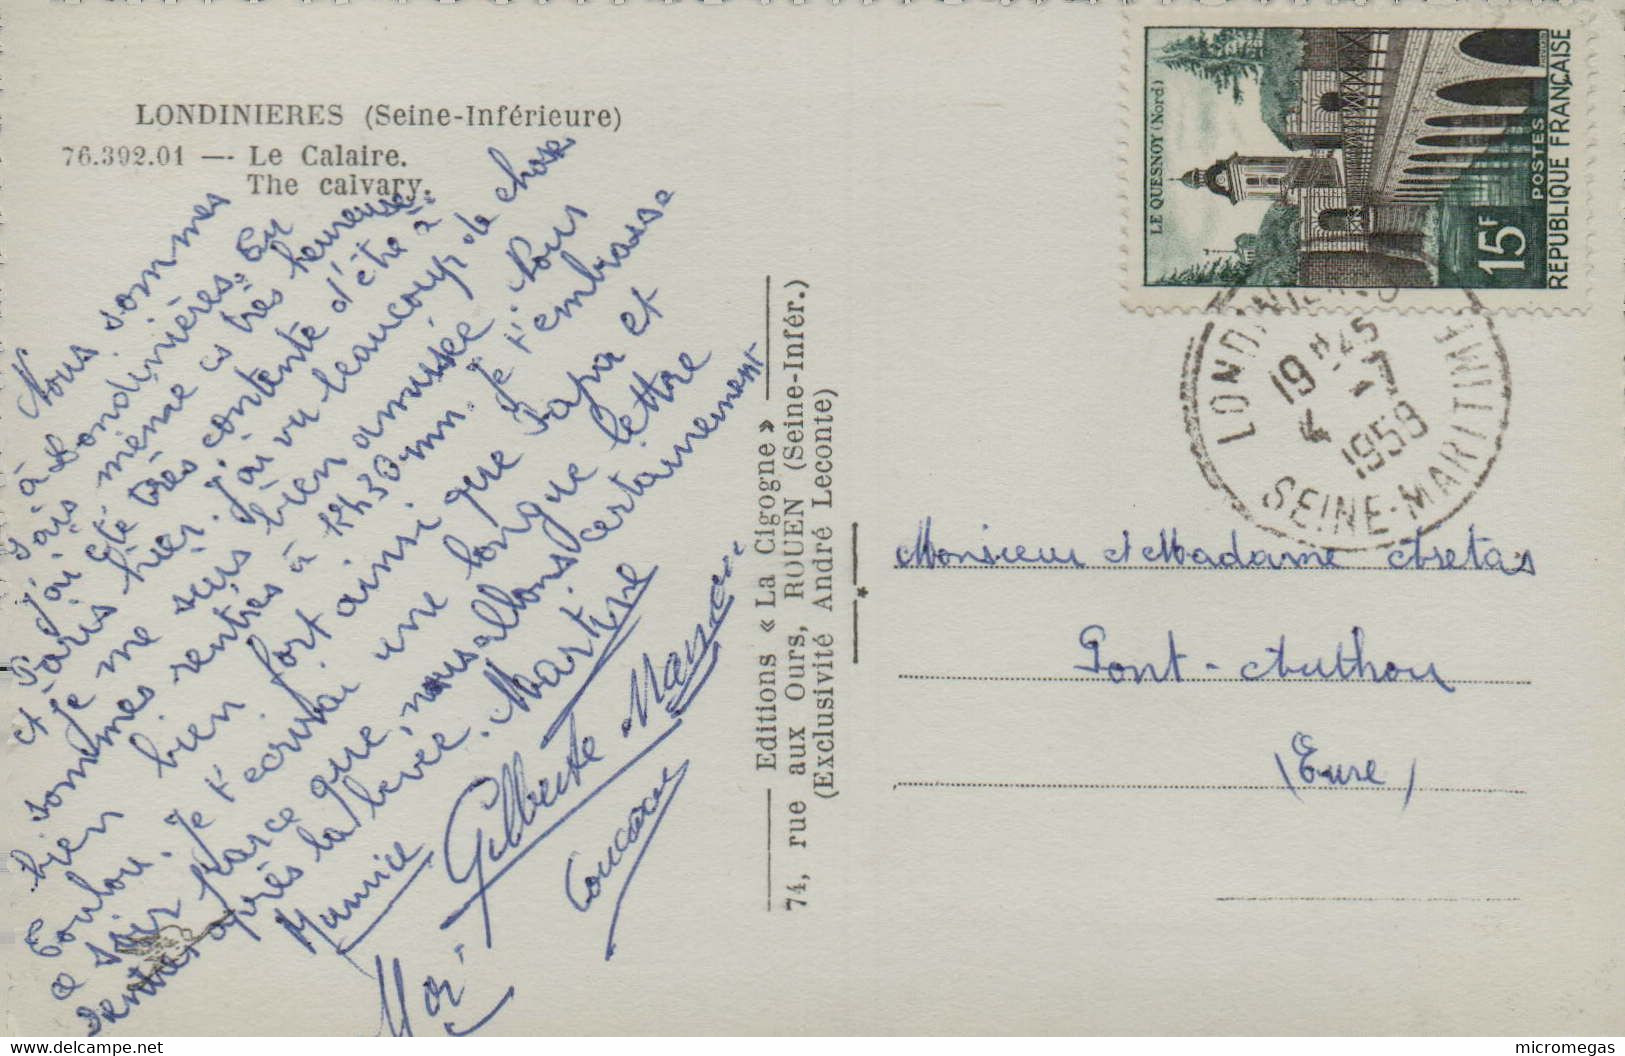 LONDINIERES (Seine-Inférieure)
76.392.01 — Le Calaire.
The calvary.
Nous sommes
à Londinières. Eu
suis même très heureuse
J'ai été très contente d'été à
Paris hier. J'ai vu beaucoup de choses
et je me suis bien amusée. Nous
sommes rentrés à 12h30mn. Je t'embrasse
bien bien fort ainsi que Papa et
Loulou. Je t'écrirai une longue lettre
ce soir parce que, nous allons certainement
rentrer après la levée. Martine
Maurice
Gilberte
Moi
Editions « La Cigogne »
74, rue aux Ours, ROUEN (Seine-Infér.)
(Exclusivité André Leconte)
LE QUESNOY (Nord)
15F
POSTES
REPUBLIQUE FRANÇAISE
LONDINIERES
19H45
4-7
1959
SEINE-MARITIME
Monsieur et Madame
Pont-Authou
(Eure)
micromegas